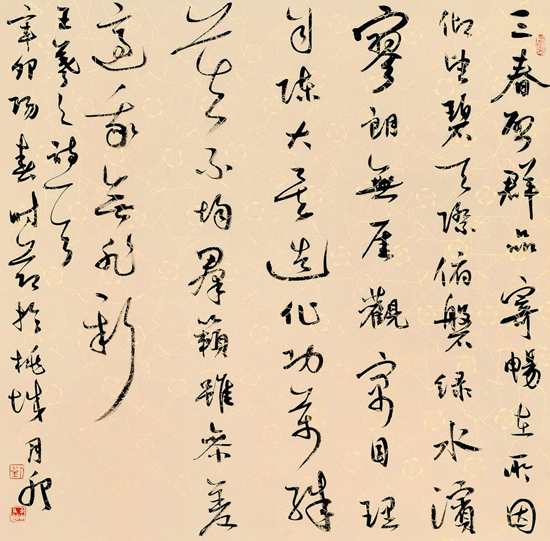 三春啓群品寄暢在所因
仰望碧天際俯磐绿水濱
寥朗無厓觀寓目理
自陳大矣造化功萬殊
莫不均羣籟雖參差
適我無非新
王羲之詩一首
辛卯陽春時節於桃城月